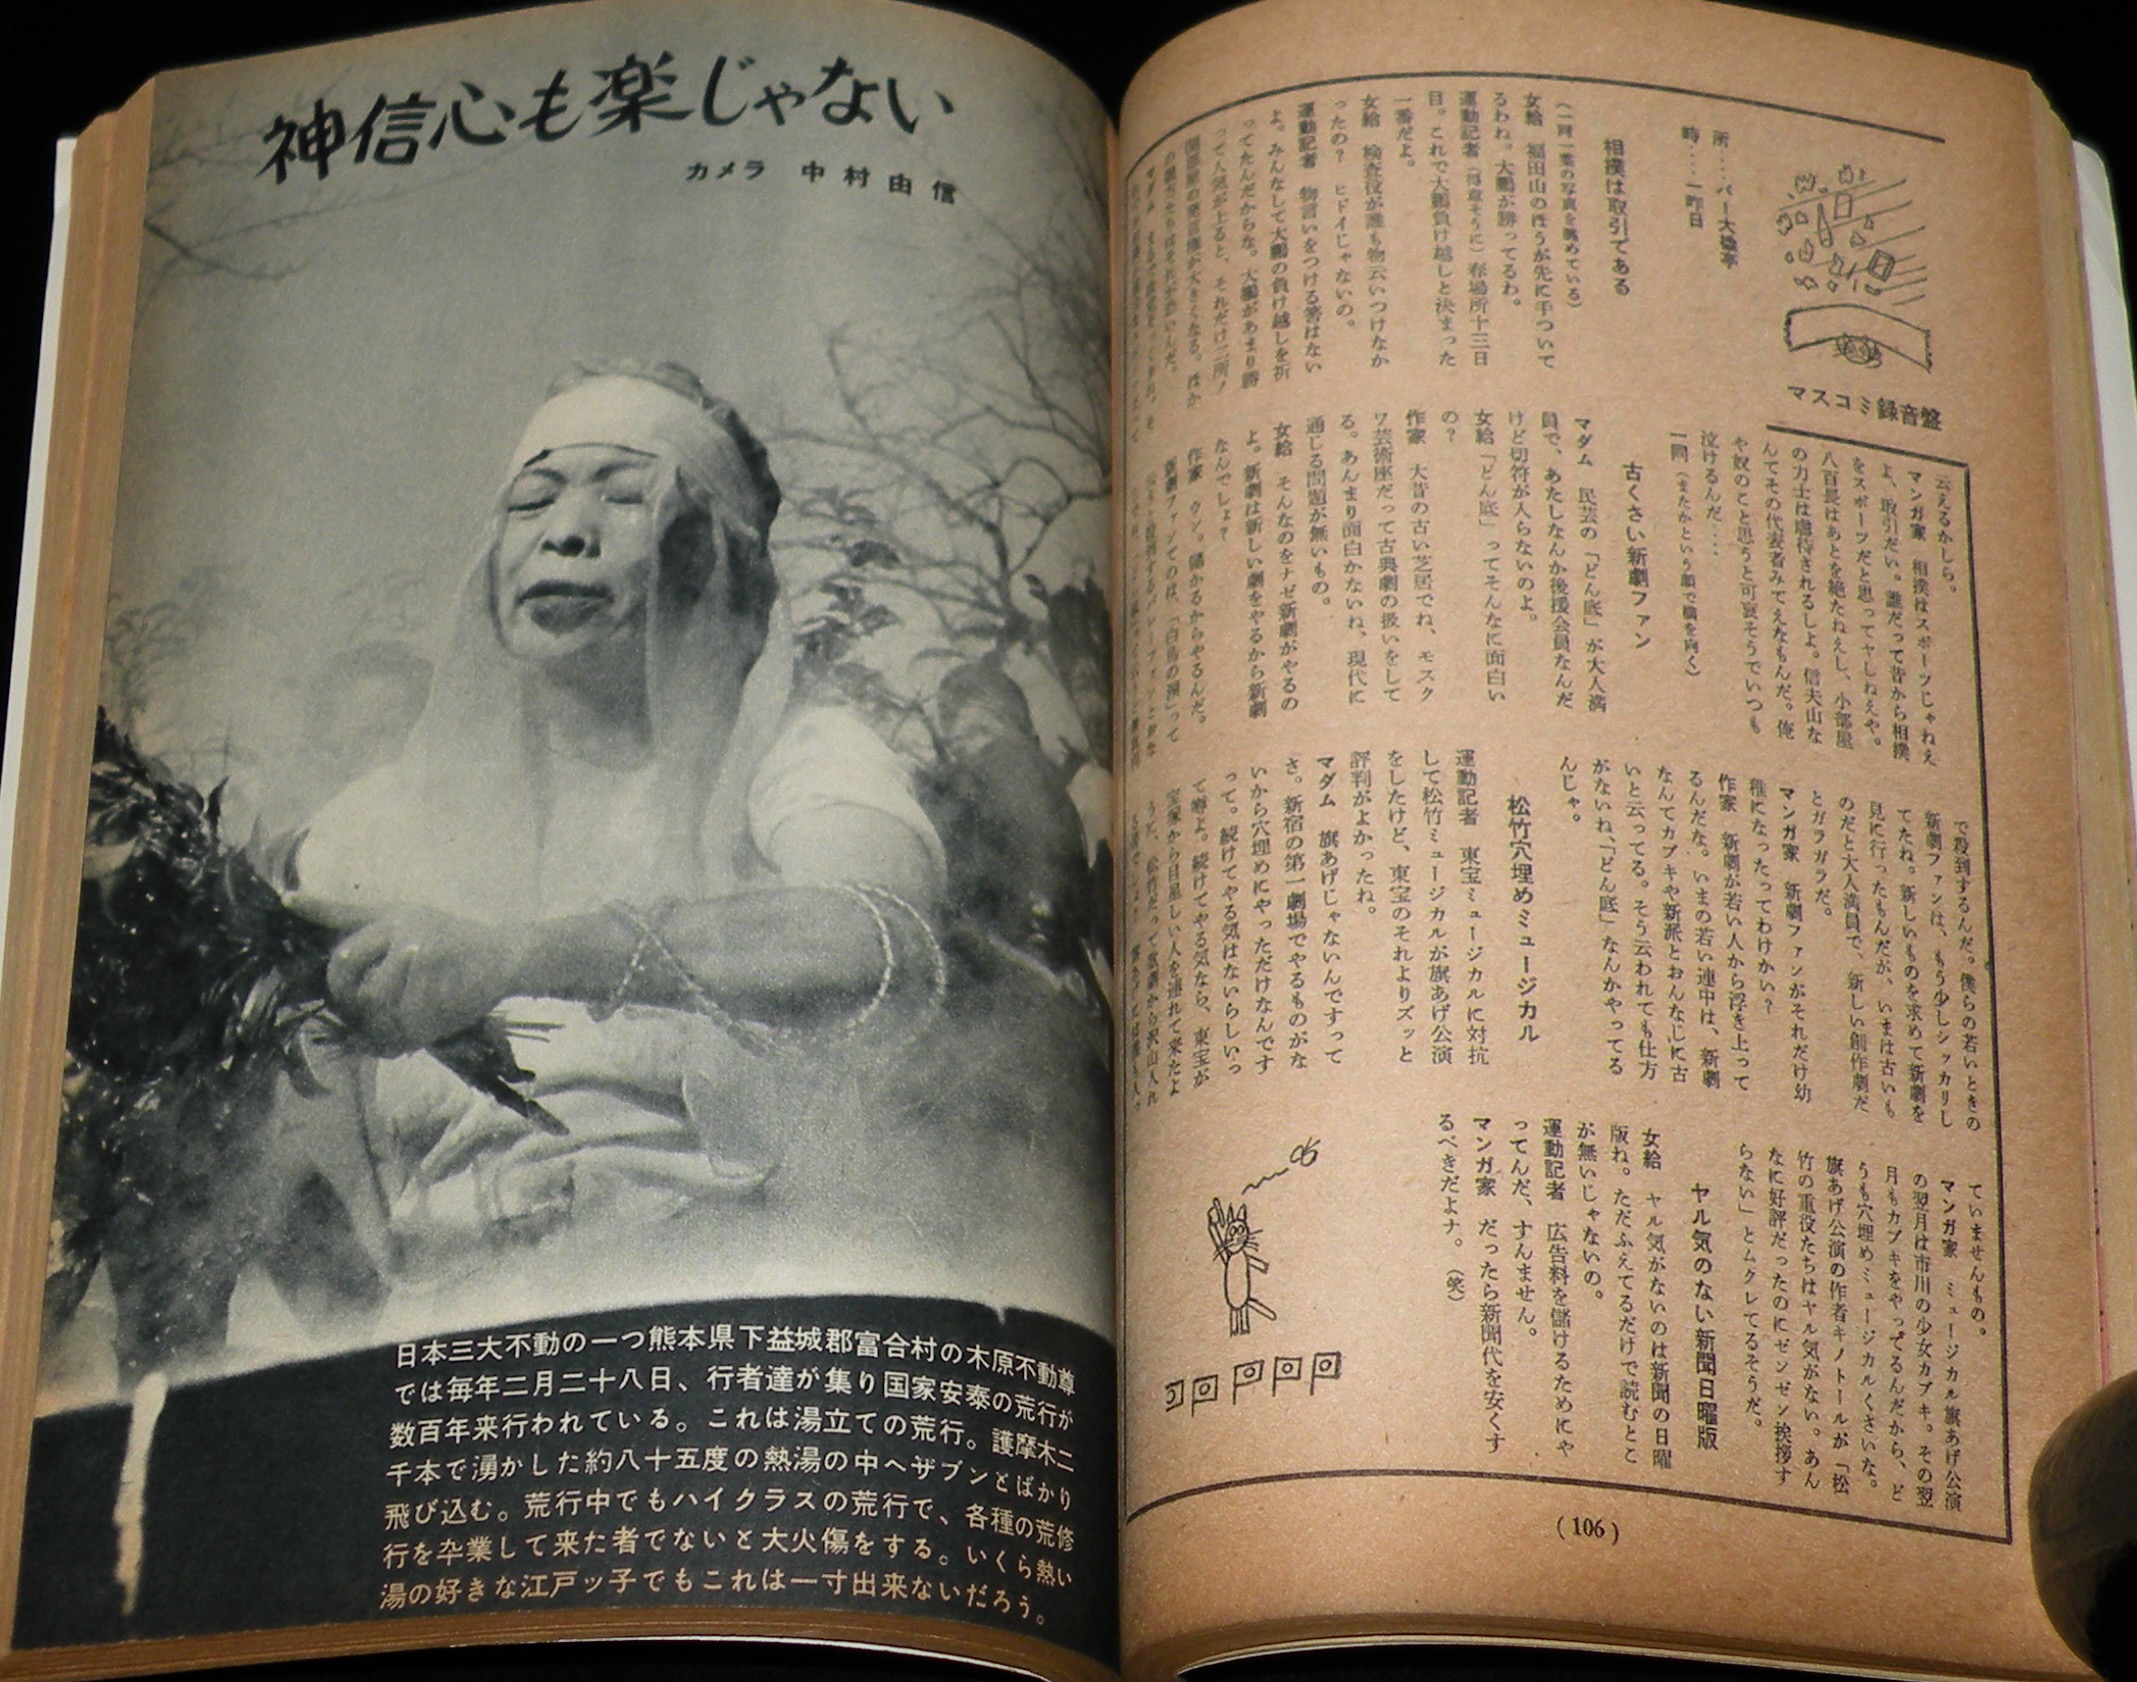 神信心も楽じゃない
カメラ 中村由信
日本三大不動の一つ熊本県下益城郡富合村の木原不動尊
では毎年二月二十八日、行者達が集り国家安泰の荒行が
数百年来行われている。これは湯立ての荒行。護摩木二
千本で湧かした約八十五度の熱湯の中へザブンとばかり
飛び込む。荒行中でもハイクラスの荒行で、各種の荒修
行を卒業して来た者でないと大火傷をする。いくら熱い
湯の好きな江戸ッ子でもこれは一寸出来ないだろう。
マスコミ録音盤
所‥‥バー大
時‥‥一昨日
相撲は取引である
(一同一葉の写真を眺めている)
女給 福田山のほうが先に手ついて
るわね。大鵬が勝ってるわ。
運動記者(得意そうに)春場所十三日
目。これで大鵬負け越しと決まった
一番だよ。
女給 検査役が誰も物云いつけなか
ったの? ヒドイじゃないの。
運動記者 物言いをつける筈はない
よ。みんなして大鵬の負け越しを祈
ってたんだからな。大鵬があまり勝
って人気が上ると、それだけ二所ノ
関部屋の発言権が大きくなる。ほか
云えるかしら。
マンガ家 相撲はスポーツじゃねえ
よ、取引だい。誰だって昔から相撲
をスポーツだと思ってヤしねえや。
八百長はあとを絶たねえし、小部屋
の力士は虐待されるしよ。信夫山な
んてその代表者みてえなもんだ。俺
や奴のこと思うと可哀そうでいつも
泣けるんだ‥‥
一同(またかという顔で横を向く)
古くさい新劇ファン
マダム 民芸の「どん底」が大入満
員で、あたしなんか後援会員なんだ
けど切符が入らないのよ。
女給「どん底」ってそんなに面白い
の?
作家 大昔の古い芝居でね、モスク
ワ芸術座だって古典劇の扱いをして
る。あんまり面白かないね、現代に
通じる問題が無いもの。
女給 そんなのをナゼ新劇がやるの
よ。新劇は新しい劇をやるから新劇
なんでしょ?
作家 ウン。儲かるからやるんだ。
新劇ファンてのは、「白鳥の湖」って
で殺到するんだ。僕らの若いときの
新劇ファンは、もう少しシッカリし
てたね。新しいものを求めて新劇を
見に行ったもんだが、いまは古いも
のだと大入満員で、新しい創作劇だ
とガラガラだ。
マンガ家 新劇ファンがそれだけ幼
稚になったってわけかい?
作家 新劇が若い人から浮き上って
るんだな。いまの若い連中は、新劇
なんてカブキや新派とおんなじに古
いと云ってる。そう云われても仕方
がないね、「どん底」なんかやってる
んじゃ。
松竹穴埋めミュージカル
運動記者 東宝ミュージカルに対抗
して松竹ミュージカルが旗あげ公演
をしたけど、東宝のそれよりズッと
評判がよかったね。
マダム 旗あげじゃないんですって
さ。新宿の第一劇場でやるものがな
いから穴埋めにやっただけなんです
って。続けてやる気はないらしいっ
て噂よ。続けてやる気なら、東宝が
宝塚から目星しい人を連れて来たよ
うに、松竹だって歌劇から沢山入れ
ていませんもの。
マンガ家 ミュージカル旗あげ公演
の翌月は市川の少女カブキ。その翌
月もカブキをやってるんだから、ど
うも穴埋めミュージカルくさいな。
旗あげ公演の作者キノトールが「松
竹の重役たちはヤル気がない。あん
なに好評だったのにゼンゼン挨拶す
らない」とムクレてるそうだ。
ヤル気のない新聞日曜版
女給 ヤル気がないのは新聞の日曜
版ね。ただふえてるだけで読むとこ
が無いじゃないの。
運動記者 広告料を儲けるためにや
ってんだ、すんません。
マンガ家 だったら新聞代を安くす
るべきだよナ。(笑)
(106)